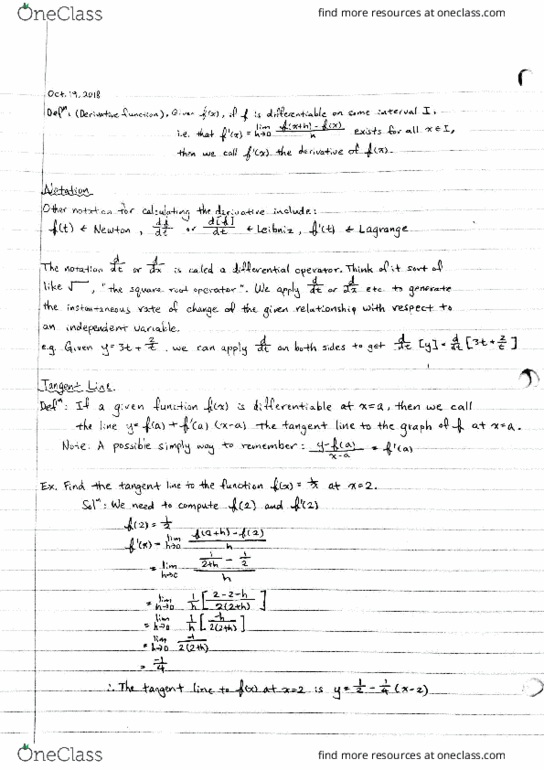 OneClass
find more resources at oneclass.com
Oct. 19, 2018
Defⁿ: (Derivative function), Given f(x), if f is differentiable on some interval I,
i.e. that f'(x) = lim h→0 (f(x+h) - f(x))/h exists for all x∈I,
then we call f'(x) the derivative of f(x).
Notation
Other notation for calculating the derivative include:
f(t) ← Newton, df/dt or d[f]/dt ← Leibniz, f'(t) ← Lagrange
The notation d/dt or d/dx is called a differential operator. Think of it sort of
like √ , "the square root operator". We apply d/dt or d/dx etc. to generate
the instantaneous rate of change of the given relationship with respect to
an independent variable.
e.g. Given y = 3t + 2/t, we can apply d/dt on both sides to get d/dt [y] = d/dt [3t + 2/t]
Tangent Line.
Defⁿ: If a given function f(x) is differentiable at x=a, then we call
the line y = f(a) + f'(a) (x-a) the tangent line to the graph of f at x=a.
Note: A possible simply way to remember: (y-f(a))/(x-a) = f'(a)
Ex. Find the tangent line to the function f(x) = 1/x at x=2.
Solⁿ: We need to compute f(2) and f'(2)
f(2) = 1/2
f'(x) = lim h→0 (f(2+h) - f(2))/h
= lim h→0 (1/(2+h) - 1/2)/h
= lim h→0 1/h [(2-2-h)/(2(2+h))]
= lim h→0 1/h [-h/(2(2+h))]
= lim h→0 -1/(2(2+h))
= -1/4
∴ The tangent line to f(x) at x=2 is y = 1/2 - 1/4 (x-2)
OneClass
find more resources at oneclass.com